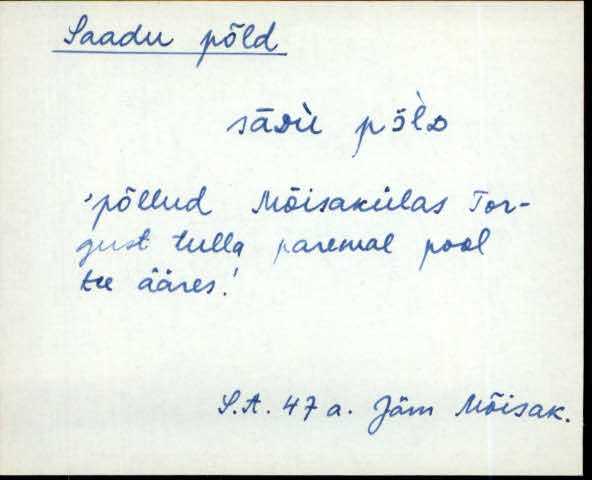 Saadu põld
sāᴅù põ̀lᴅ
'põllud Mõisakülas Tor-
gust tulla paremal pool
tee ääres.'
S.A. 47 a. Jäm Mõisak.